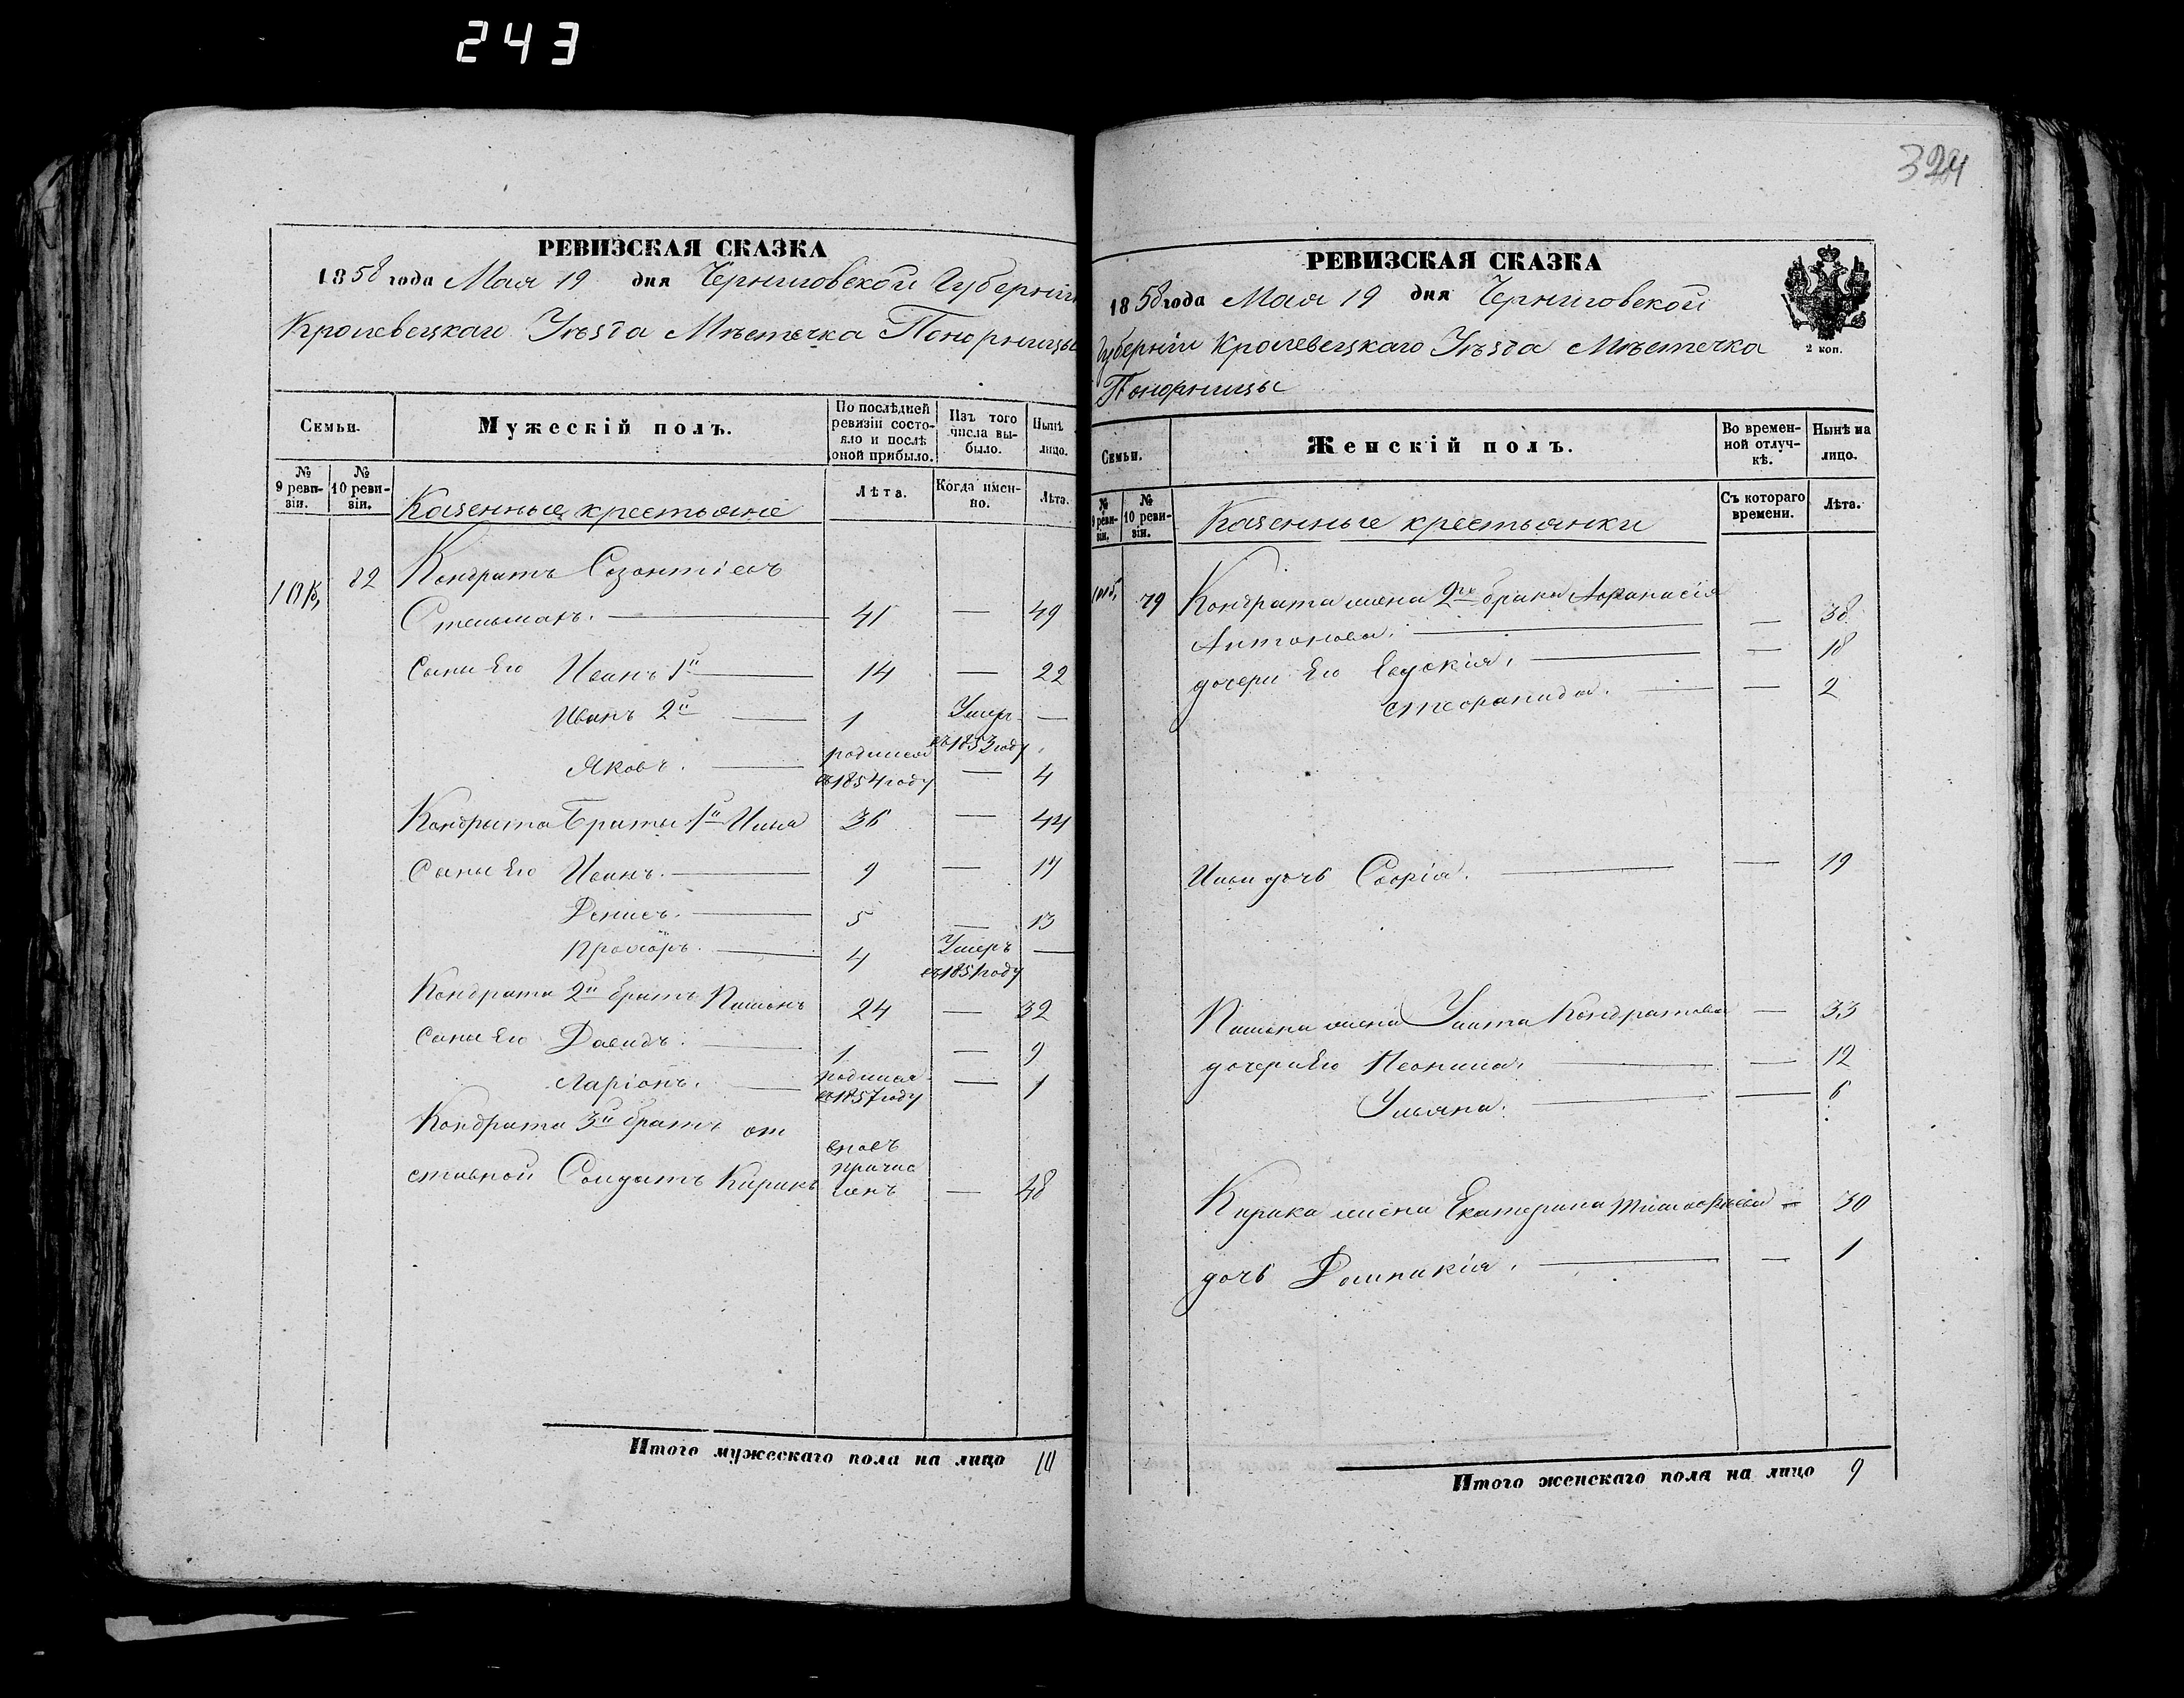 243
324
РЕВИЗСКАЯ СКАЗКА
1858 года Мая 19 дня Черниговской Губерніи
Кролевецкаго Уѣзда Мѣстечка Понорницы
Семьи.
Мужескій полъ.
По послѣдней ревизіи состояло и послѣ оной прибыло.
Изъ того числа выбыло.
Нынѣ лицо.
№ 9 ревизіи.
№ 10 ревизіи.
Казенные крестьяне
Лѣта.
Когда именно.
Лѣта.
82 Кондратъ Созонтіевъ
Стельмахъ. 41 — 49
Сыны Его Иванъ 1й 14 — 22
Иванъ 2й 1 Умеръ въ 1853 году —
Яковъ. родился въ 1854 году — 4
Кондрата Браты 1й Илья 36 — 44
Сыны Его Иванъ. 9 — 17
Денисъ. 5 — 13
Прохоръ. 4 Умеръ въ 1851 году —
Кондрата 2й братъ 24 — 32
Сыны Его Давидъ. 1 — 9
Ларіонъ. родился въ 1857 году — 1
Кондрата 3й братъ от
ставной Солдатъ Кирикъ вновь причисленъ — 48
Итого мужескаго пола на лицо 10
РЕВИЗСКАЯ СКАЗКА
1858 года Мая 19 дня Черниговской
Губерніи Кролевецкаго Уѣзда Мѣстечка
Понорницы
2 коп.
Семьи.
Женскій полъ.
Во временной отлучкѣ.
Нынѣ на лицо.
№ 9 ревизіи.
№ 10 ревизіи.
Казенные крестьянки
Съ котораго времени.
Лѣта.
79 Кондрата жена 2го брака Афанасія
Антонова. — 38
дочери Его Евдокія. — 18
Стефанида. — 2
Ильи дочь Софія. — 19
жена Улита Кондратова — 33
дочери Его Неонила. — 12
Ульяна. — 6
Кирика жена Екатерина Тимофѣева — 30
дочь Домникія. — 1
Итого женскаго пола на лицо 9